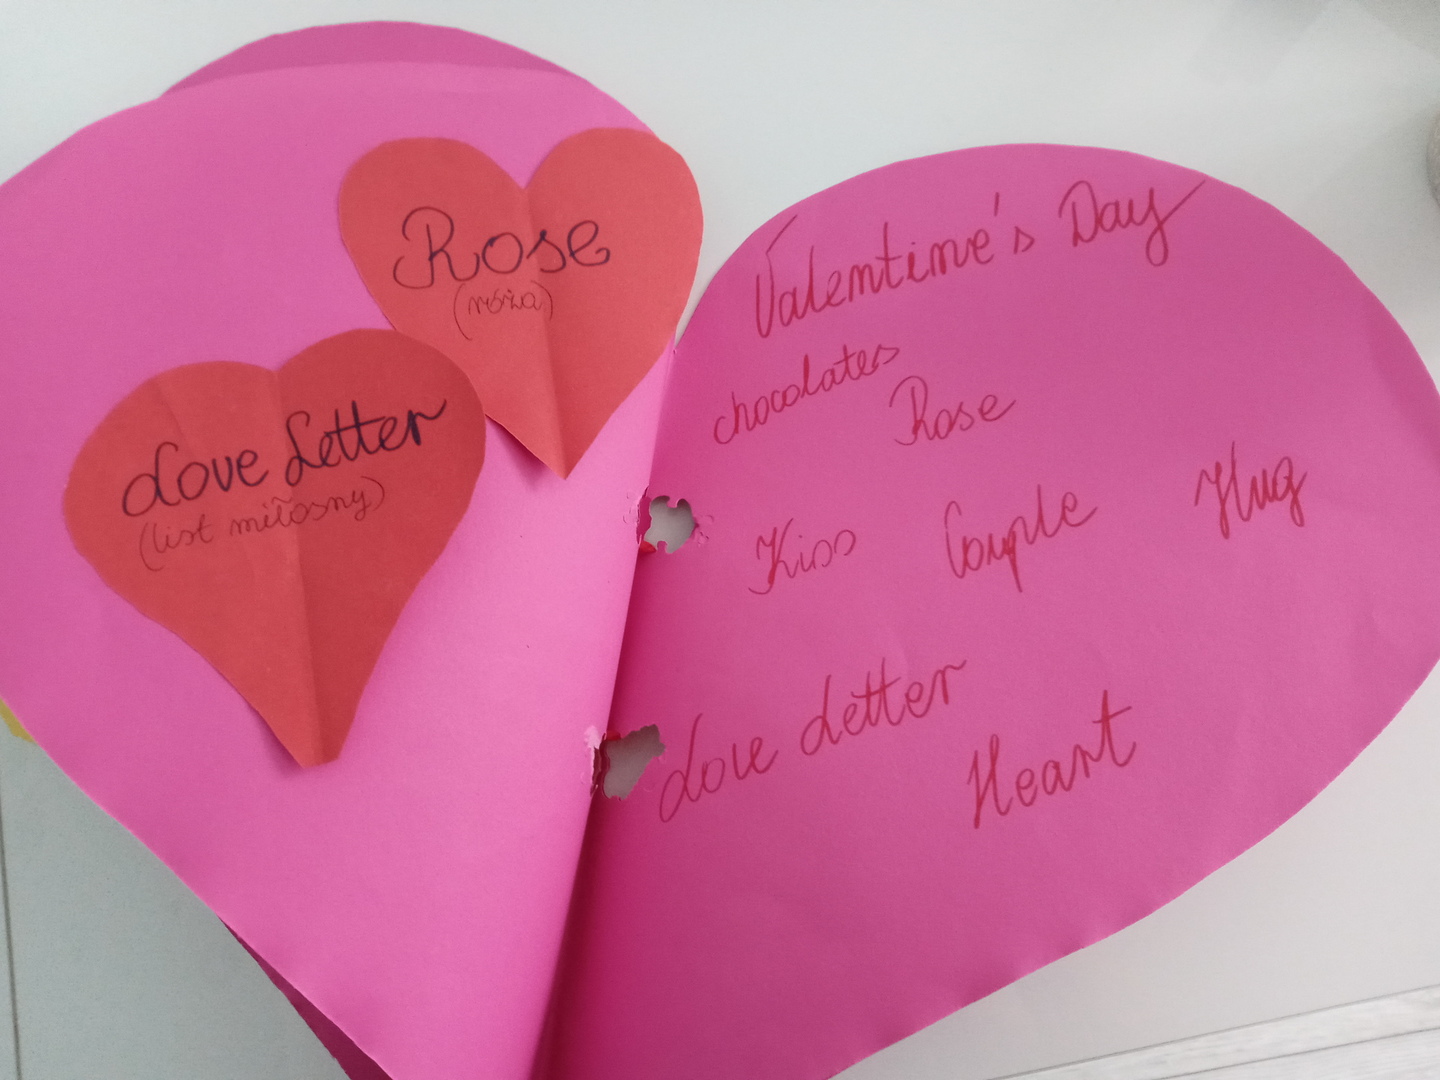 Rose
(róża)
Love Letter
(list miłosny)
Valentine's Day
chocolates
Rose
Kiss Couple Hug
Love Letter
Heart